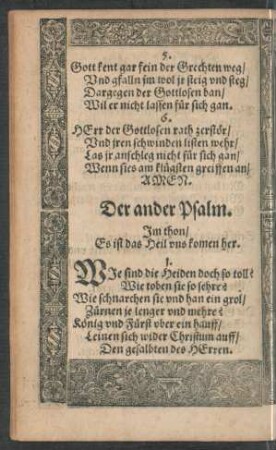 5.
Gott kent gar fein der Grechten weg/
Vnd gfalln jm wol jr steig vnd steg/
Dargegen der Gottlosen ban/
Wil er nicht lassen für sich gan.
6.
HErr der Gottlosen rath zerstör/
Vnd jren schwinden listen wehr/
Las jr anschleg nicht für sich gan/
Wenn sies am klügsten greiffen an/
AMEN.
Der ander Psalm.
Im thon/
Es ist das Heil vns komen her.
1.
WIe sind die Heiden doch so toll?
Wie toben sie so sehre?
Wie schnarchen sie vnd han ein grol/
Zürnen je lenger vnd mehre?
König vnd Fürst vber ein hauff/
Leinen sich wider Christum auff/
Den gesalbten des HErren.